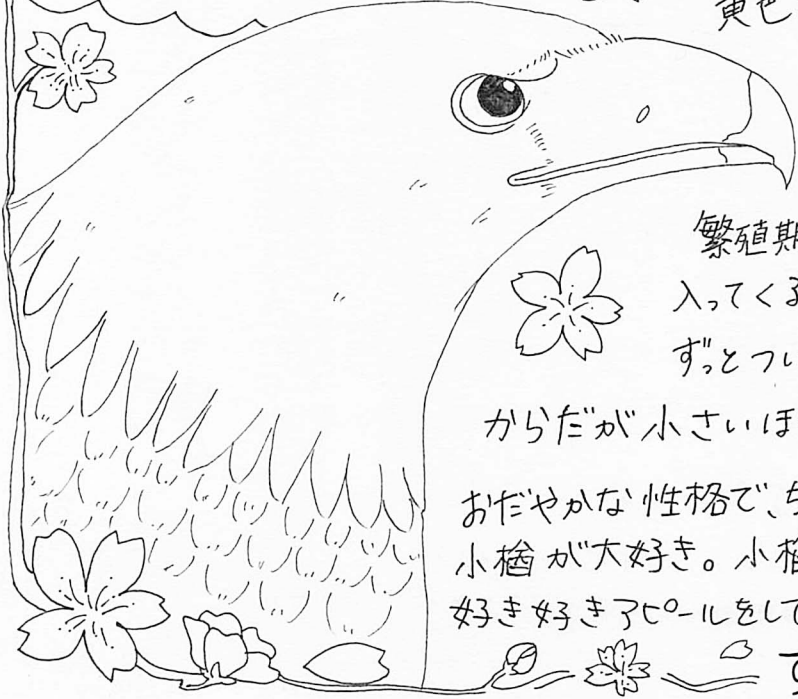 黄色
繁殖期
入ってくる
ずっとつい
からだが小さいほ
おだやかな性格で、
小楢が大好き。小楢
好き好きアピールをして